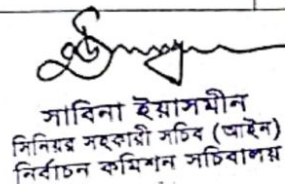 সাবিনা ইয়াসমীন
সিনিয়র সহকারী সচিব (আইন)
নির্বাচন কমিশন সচিবালয়